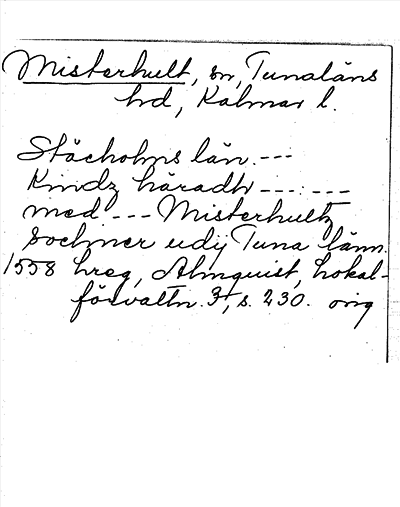 Misterhult, sn, Tunaläns
hd, Kalmar l.
Stächolms län. ---
Kindz häradh --- : ---
med --- Misterhultz
sochner udij Tuna länn.
1558 hreg, Almquist, Lokal-
förvaltn. 3, s. 230. orig